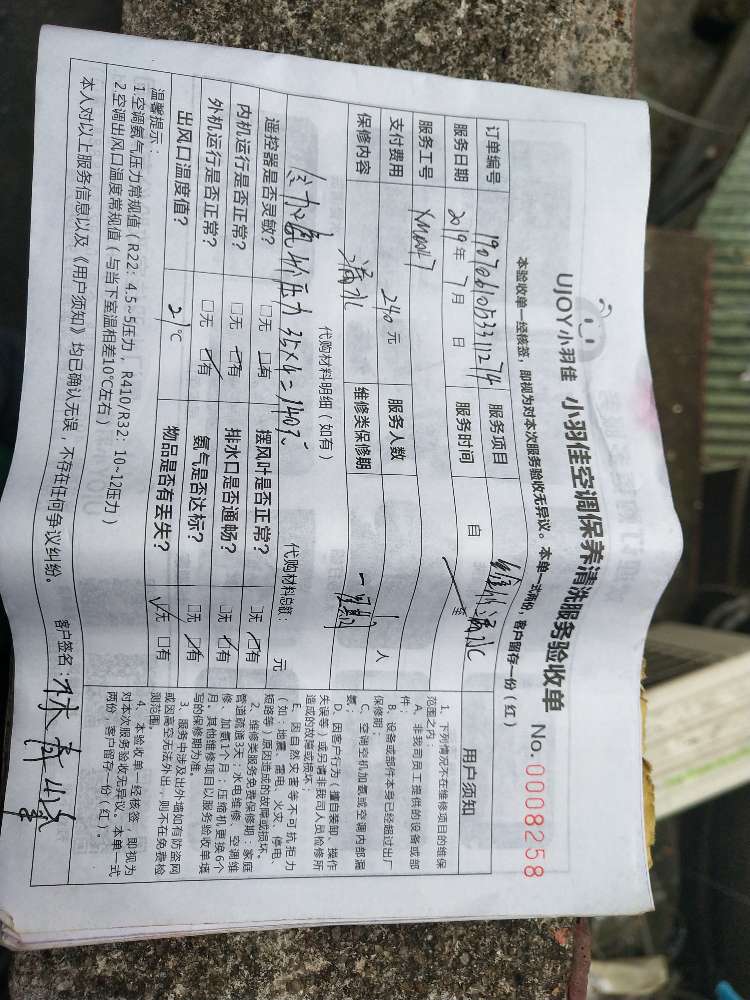 UJOY小羽佳 小羽佳空调保养清洗服务验收单 No.0008258
本验收单一经核签，即视为对本次服务验收无异议。本单一式两份，客户留存一份（红）
订单编号 服务项目 维修漏水
服务日期 2019年7月 日 服务时间 自 至
服务工号 XM0017
支付费用 240元 服务人数 1人
保修内容 漏水 维修类保修期 一星期
代购材料明细（如有） 代购材料总额： 元
压力 35×4=140元
遥控器是否灵敏？ □无 □有 摆风叶是否正常？ □无 □有
内机运行是否正常？ □无 □有 排水口是否通畅？ □无 □有
外机运行是否正常？ □无 □有 氨气是否达标？ □无 □有
出风口温度值？ 21℃ 物品是否有丢失？ □无 □有
温馨提示：
1.空调氨气压力常规值（R22：4.5~5压力，R410/R32：10~12压力）
2.空调出风口温度常规值（与当下室温相差10℃左右）
本人对以上服务信息以及《用户须知》均已确认无误，不存在任何争议纠纷。 客户签名：林
用户须知
1、下列情况不在维修项目的维保
范围之内：
A、非我司员工提供的设备或部
件；
B、设备或部件本身已经超过出厂
保修期；
C、空调旁机加氨或空调内部漏
氨；
D、因客户行为（擅自装卸、操作
失误等）或另请非我司人员检修所
造成的故障或损坏；
E、因自然灾害等不可抗拒力
（如：地震、雷电、火灾、停电、
短路等）原因造成的故障或损坏。
2、维修类服务免费保修期：家庭
管道疏通3天；水电维修、空调维
修、加氨1个月；压缩机更换6个
月，其他维修项目以服务验收单填
写的保修期为准。
3、服务中涉及出外墙如有防盗网
或因高空无法外出，则不在免费检
测范围。
4、本验收单一经核签，即视为
对本次服务验收无异议。本单一式
两份，客户留存一份（红）。